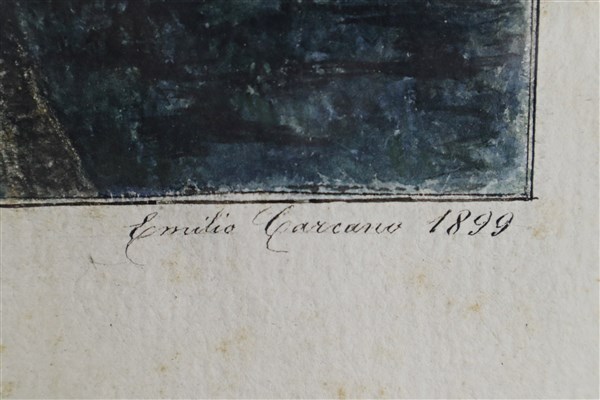 Emilio Carcano 1899